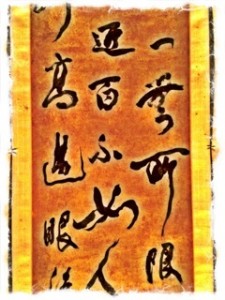 一無所限
近百不如人
高過眼